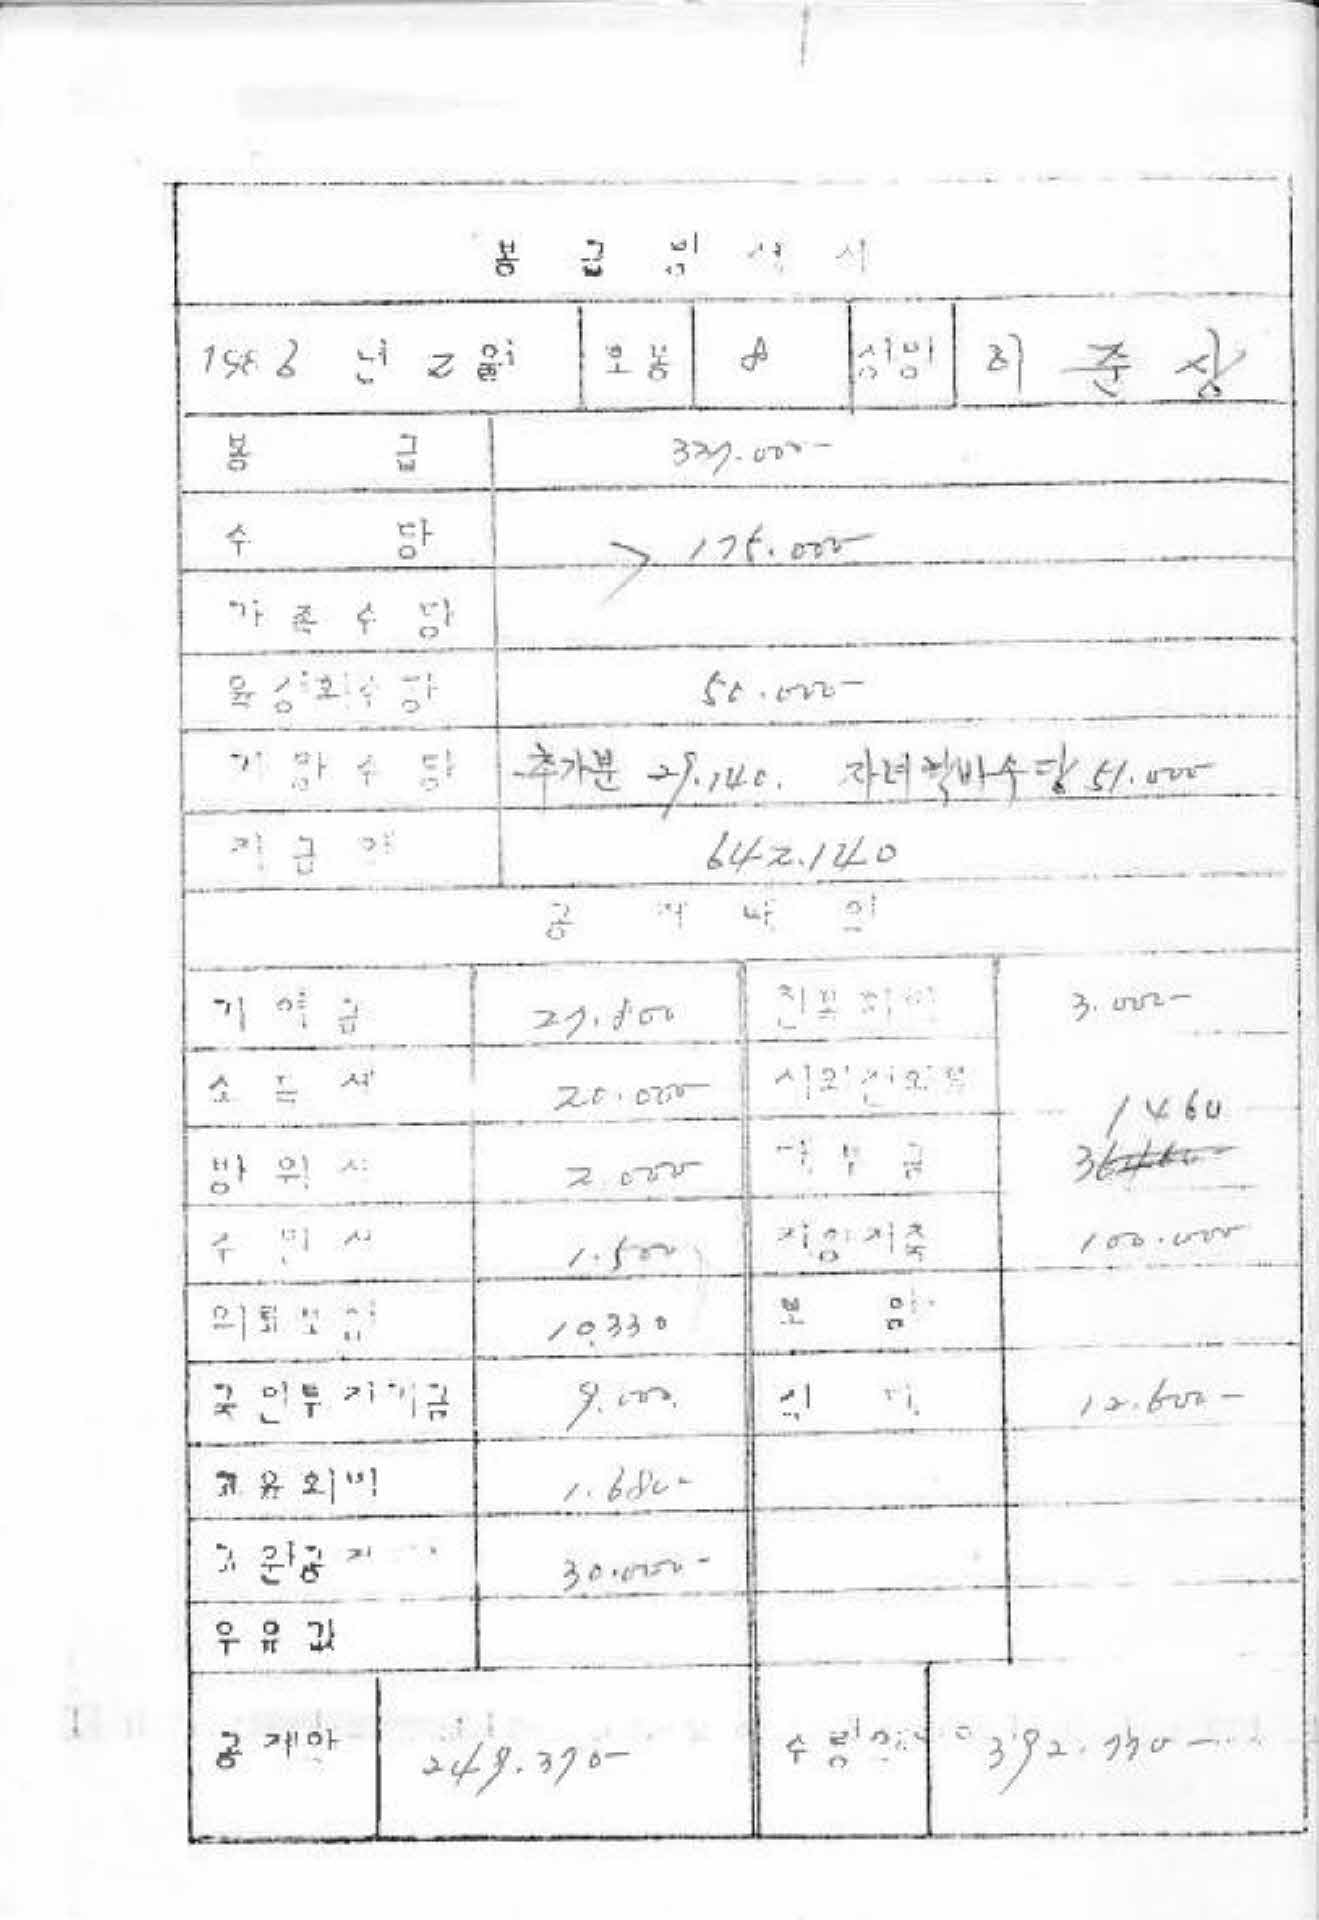 봉급명세서
1986 년 2 월 호봉 8 성명 최 준 상
봉 급 337.000-
수 당 175.000
가 족 수 당
육성회수당 50.000-
기 말 수 당 추가분 29.140. 자녀학비수당 51.000
지 급 액 642.140
공 제 내 역
기 여 금 27.800 친목회비 3.000-
소 득 세 20.000 시외전화료
1460
방 위 세 2.000 대 부 금
주 민 세 1.500 재형저축 100.000
의료보험 10.330 보 험
국민투자기금 9.000 식 대 12.600-
교육회비 1.680-
교원공제 30.000-
우 유 값
공제액 249.370- 수령액 392.770-